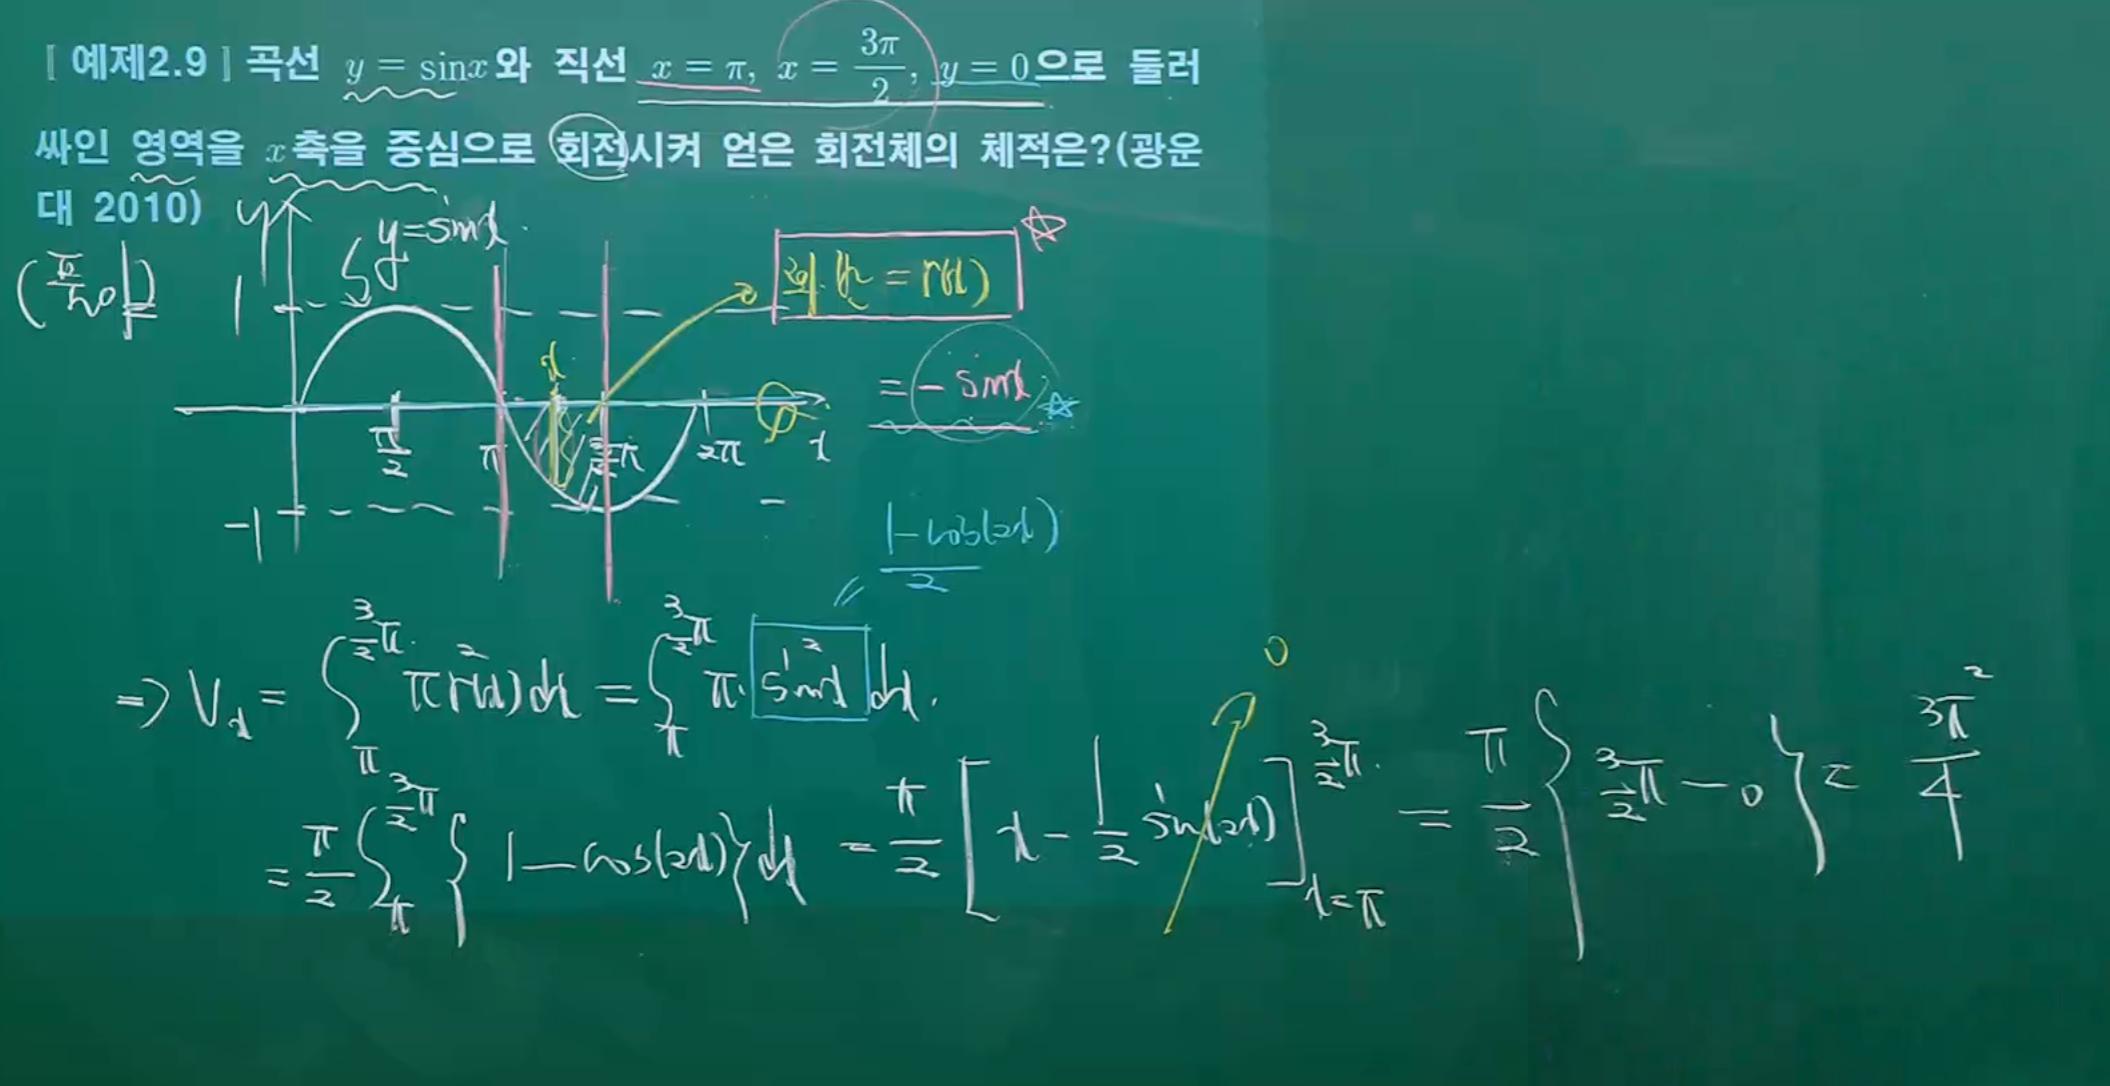 [ 예제2.9 ] 곡선 y = sinx와 직선 x = π, x = 3π/2, y = 0으로 둘러
싸인 영역을 x축을 중심으로 회전시켜 얻은 회전체의 체적은?(광운
대 2010)
(풀이)
y
y=sinx
1
x
π/2
π
3/2π
2π
x
-1
= r(x)
= - sinx
1-cos(2x)/2
=> Vx = ∫π^(3/2π) πr²(x)dx = ∫π^(3/2π) π·sin²x dx.
0
= π/2 ∫π^(3/2π) { 1-cos(2x)}dx = π/2 [ x - 1/2 sin(2x) ]x=π^(3/2π) = π/2 { 3/2π - 0 } = 3π²/4